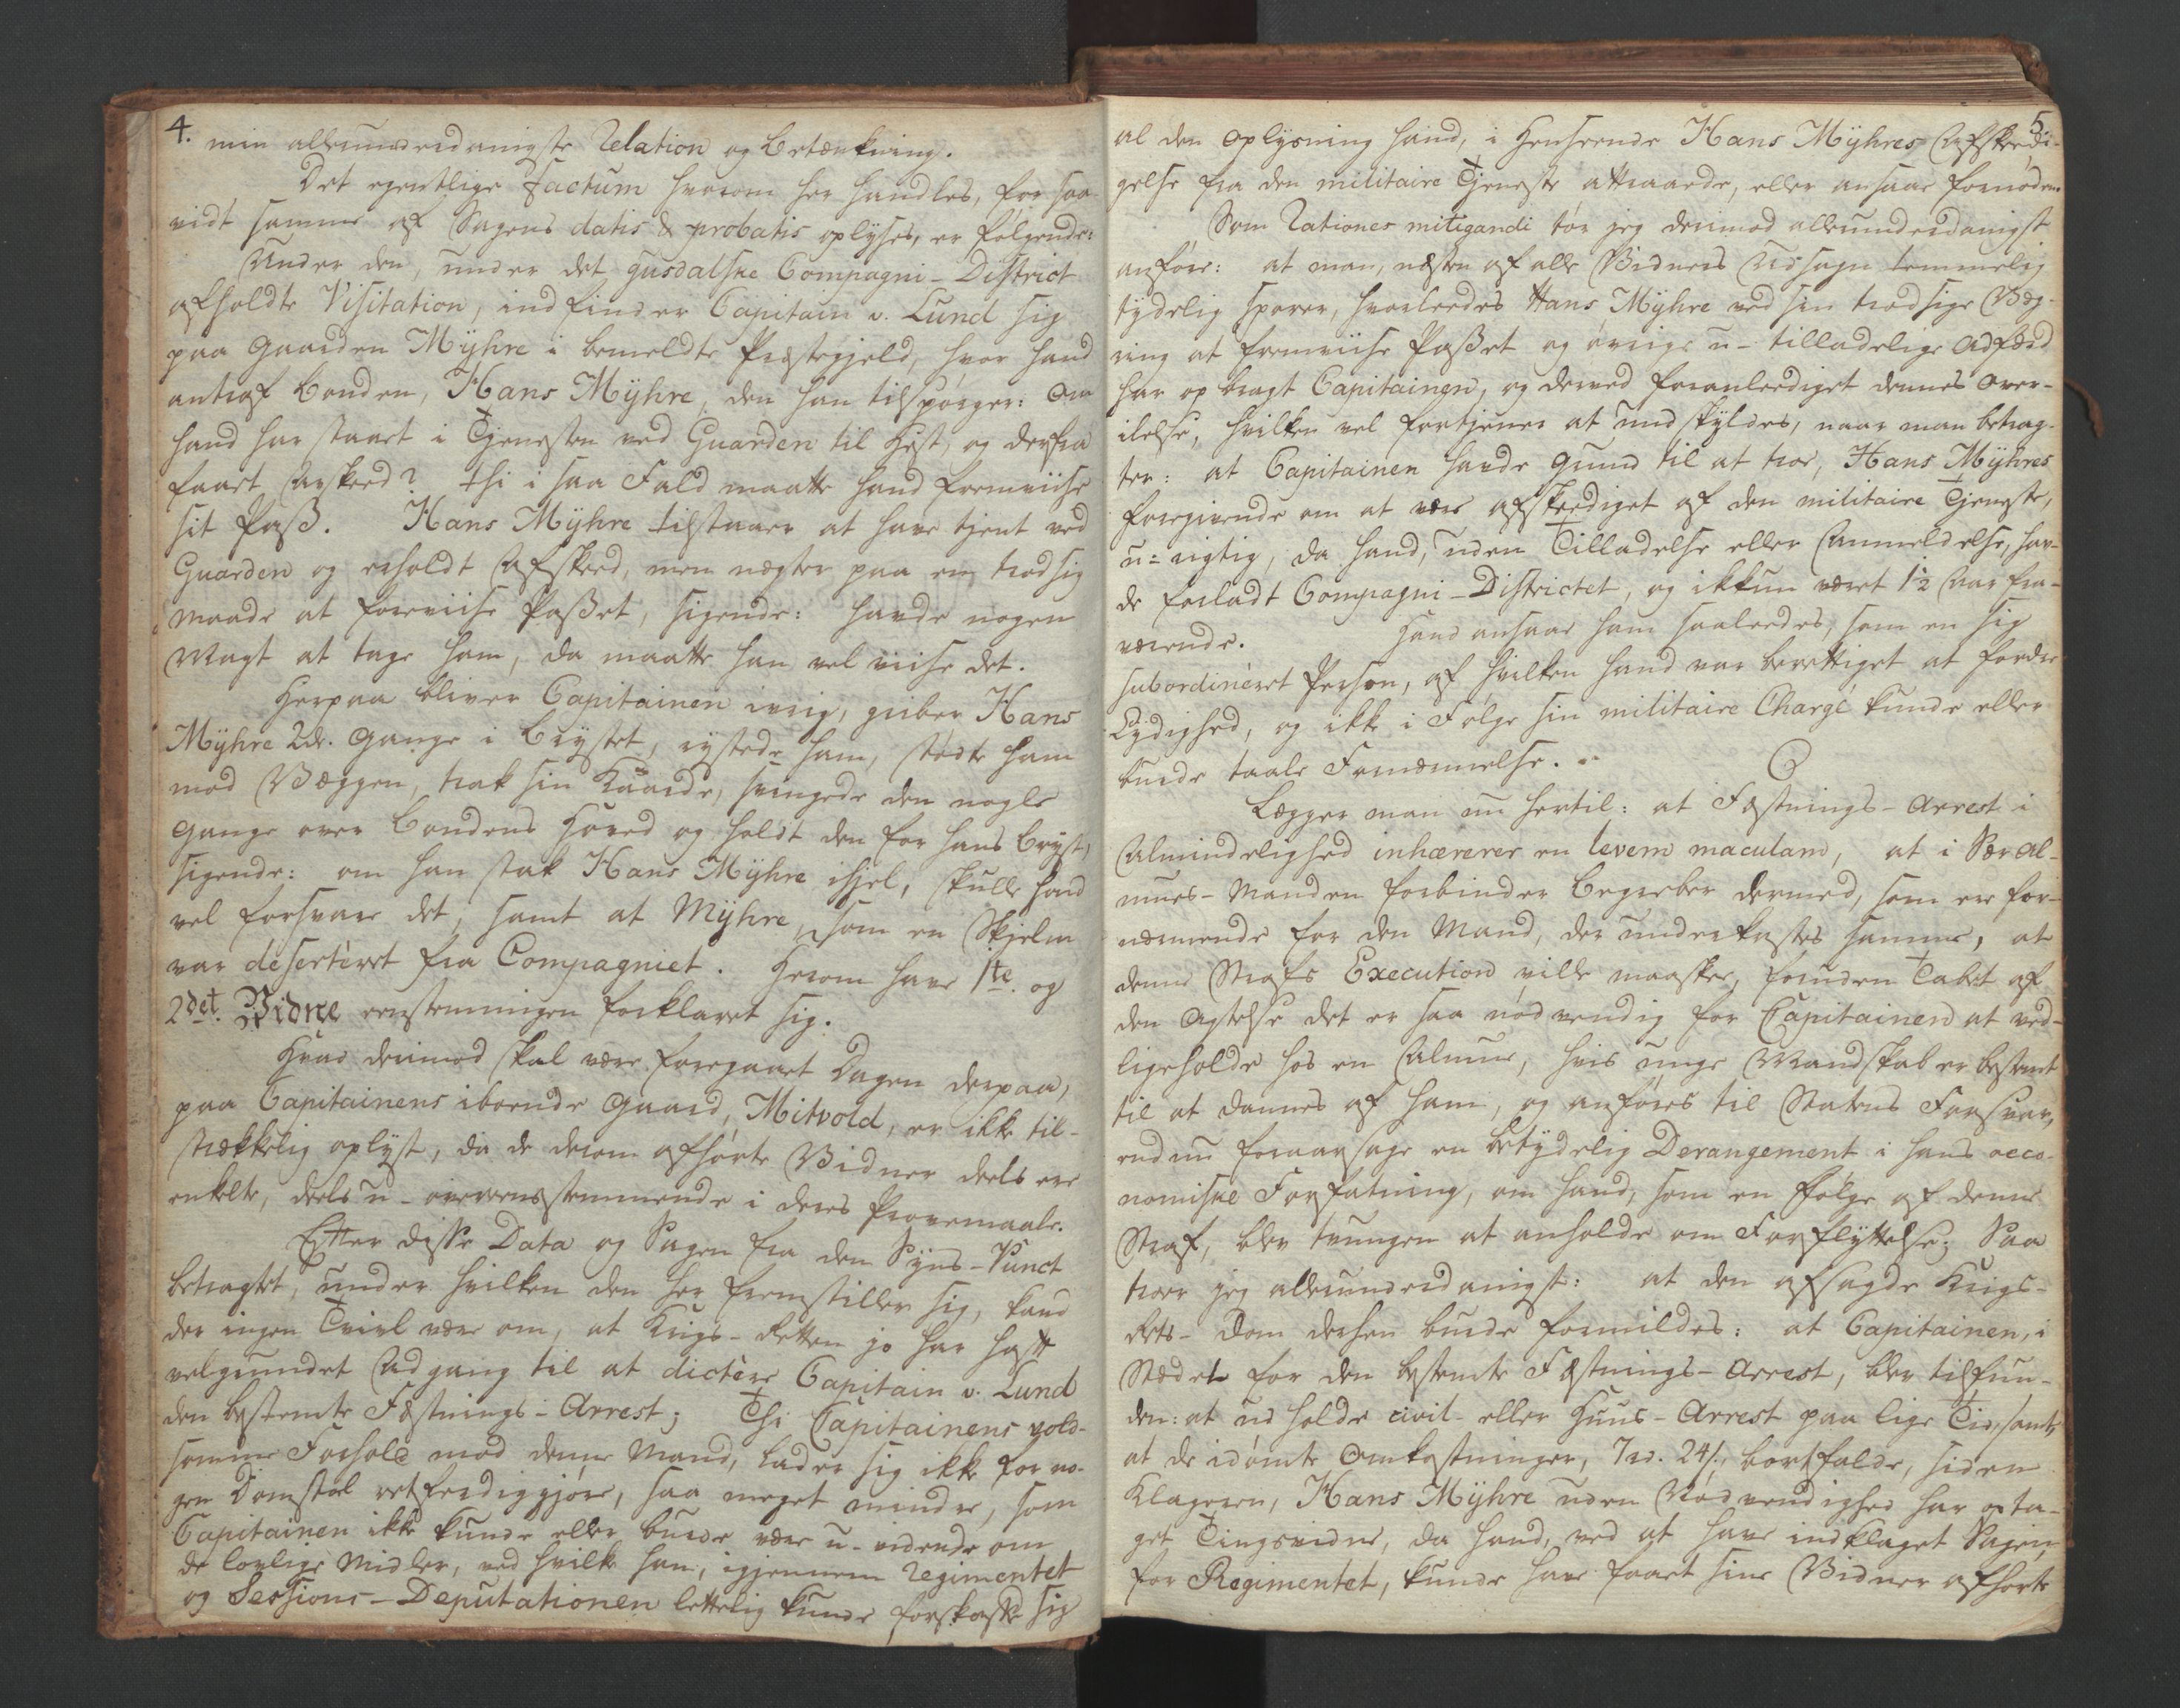 4.
min allerunderdanigste Relation og Betænkning.
Det egentlige Factum hvorom her handles, for saa-
vidt samme af Sagens datis & probatis oplyses, er følgende:
Under den, under det Gusdalske Compagni-District
afholdte Visitation, indfinder Capitain v. Lund sig
paa Gaarden Mÿhre i bemeldte Præstegjeld, hvor hand
antraf Bonden, Hans Mÿhre, den han tilspørger: Om
hand har staaet i Tjenesten ved Guarden til Hest, og derfra
faaet Afskeed? thi i saa Fald maatte hand fremviise
sit Pass. Hans Mÿhre tilstaaer at have tjent ved
Guarden og erholdt Afskeed, men nægter paa en trodsig
Maade at foreviise Passet, sigende: havde nogen
Magt at tage ham, da maatte han vel viise det.
Herpaa bliver Capitainen ivrig, griber Hans
Mÿhre 2de. Gange i Brystet, rystede ham, stødte ham
mod Væggen, trak sin Kaarde, svingede den nogle
Gange over Bondens Hoved og holdt den for hans Bryst,
sigende: om han stak Hans Mÿhre ihjel, skulle hand
vel forsvare det, samt at Mÿhre, som en Skjelm
var deserteret fra Compagniet. Herom have 1te. og
2det. Vidne eenstemmigen forklaret sig.
Hvad derimod skal være foregaaet Dagen derpaa,
paa Capitainens iboende Gaard, Mitvold, er ikke til-
strækkelig oplyst, da de derom afhørte Vidner deels ere
enkelte, deels u-overeensstemmende i deres Provemaale.
Efter disse Data og Sagen fra den Syns-Punct
betragtet, under hvilken den her fremstiller sig, kand
der ingen Tvivl være om, at Krigs-Retten jo har haft
velgrundet Adgang til at dictere Capitain v. Lund
den bestemte Fæstnings-Arrest; Thi Capitainens vold-
somme Forhold mod denne Mand, lader sig ikke for no-
gen Domstol retfærdiggjøre, saa meget mindre, som
Capitainen ikke kunde eller burde være u-vidende om
de lovlige Midler, ved hvilke han, igjennem Regimentet
og Sessions-Deputationen lettelig kunde forskaffe sig
5.
al den Oplysning hand, i Henseende Hans Mÿhres Afskeedi-
gelse fra den militaire Tjeneste attraaede, eller ansaae fornøden.
Som Rationes mitigandi tør jeg derimod allerunderdanigst
anføre: at man, næsten af alle Vidners Udsagn temmelig
tydelig sporer, hvorledes Hans Mÿhre ved sin trodsige Væg-
ring at fremviise Passet og øvrige u-tilladelige Adfærd
har opbragt Capitainen, og derved foranlediget dennes Over-
ilelse, hvilken vel fortjener at undskyldes, naar man betrag-
ter: at Capitainen havde Grund til at troe, Hans Mÿhres
foregivende om at være afskeediget af den militaire Tjeneste,
u-rigtig, da hand, uden Tilladelse eller Anmeldelse, hav-
de forladt Compagni-Districtet, og ikkun været 1½ Aar fra-
værende. Hand ansaae ham saaledes, som en sig
subordineret Person, af hvilken hand var berettiget at fordre
Lydighed, og ikke i Følge sin militaire Charge kunde eller
burde taale Fornærmelse.
Lægger man nu hertil: at Fæstnings-Arrest i
Almindelighed inhærerer en levem maculam, at i Sær Al-
mues-Manden forbinder Begreber dermed, som ere for-
nærmende for den Mand, der underkastes samme, at
denne Strafs Execution ville maaskee, foruden Tabet af
den Agtelse det er saa nødvendig for Capitainen at ved-
ligeholde hos en Almue, hvis unge Mandskab er bestemt
til at dannes af ham, og anføres til Statens Forsvar,
endnu foraarsage en betydelig Derangement i hans oeco-
nomiske Forfatning, om hand, som en Følge af denne
Straf, blev tvungen at anholde om Forflyttelse; Saa
troer jeg allerunderdanigst: at den afsagde Krigs-
Rets-Dom derhen burde formildes: at Capitainen, i
Stædet for den bestemte Fæstnings-Arrest, blev tilfun-
den: at udholde civil- eller Huus-Arrest paa lige Tid, samt
at de idømte Omkostninger, 7rd. 24s., bortfalde, siden
Klageren, Hans Mÿhre uden Nødvendighed har opta-
get Tingsvidne, da hand, ved at have indklaget Sagen
for Regimentet, kunde have faaet sine Vidner afhørte